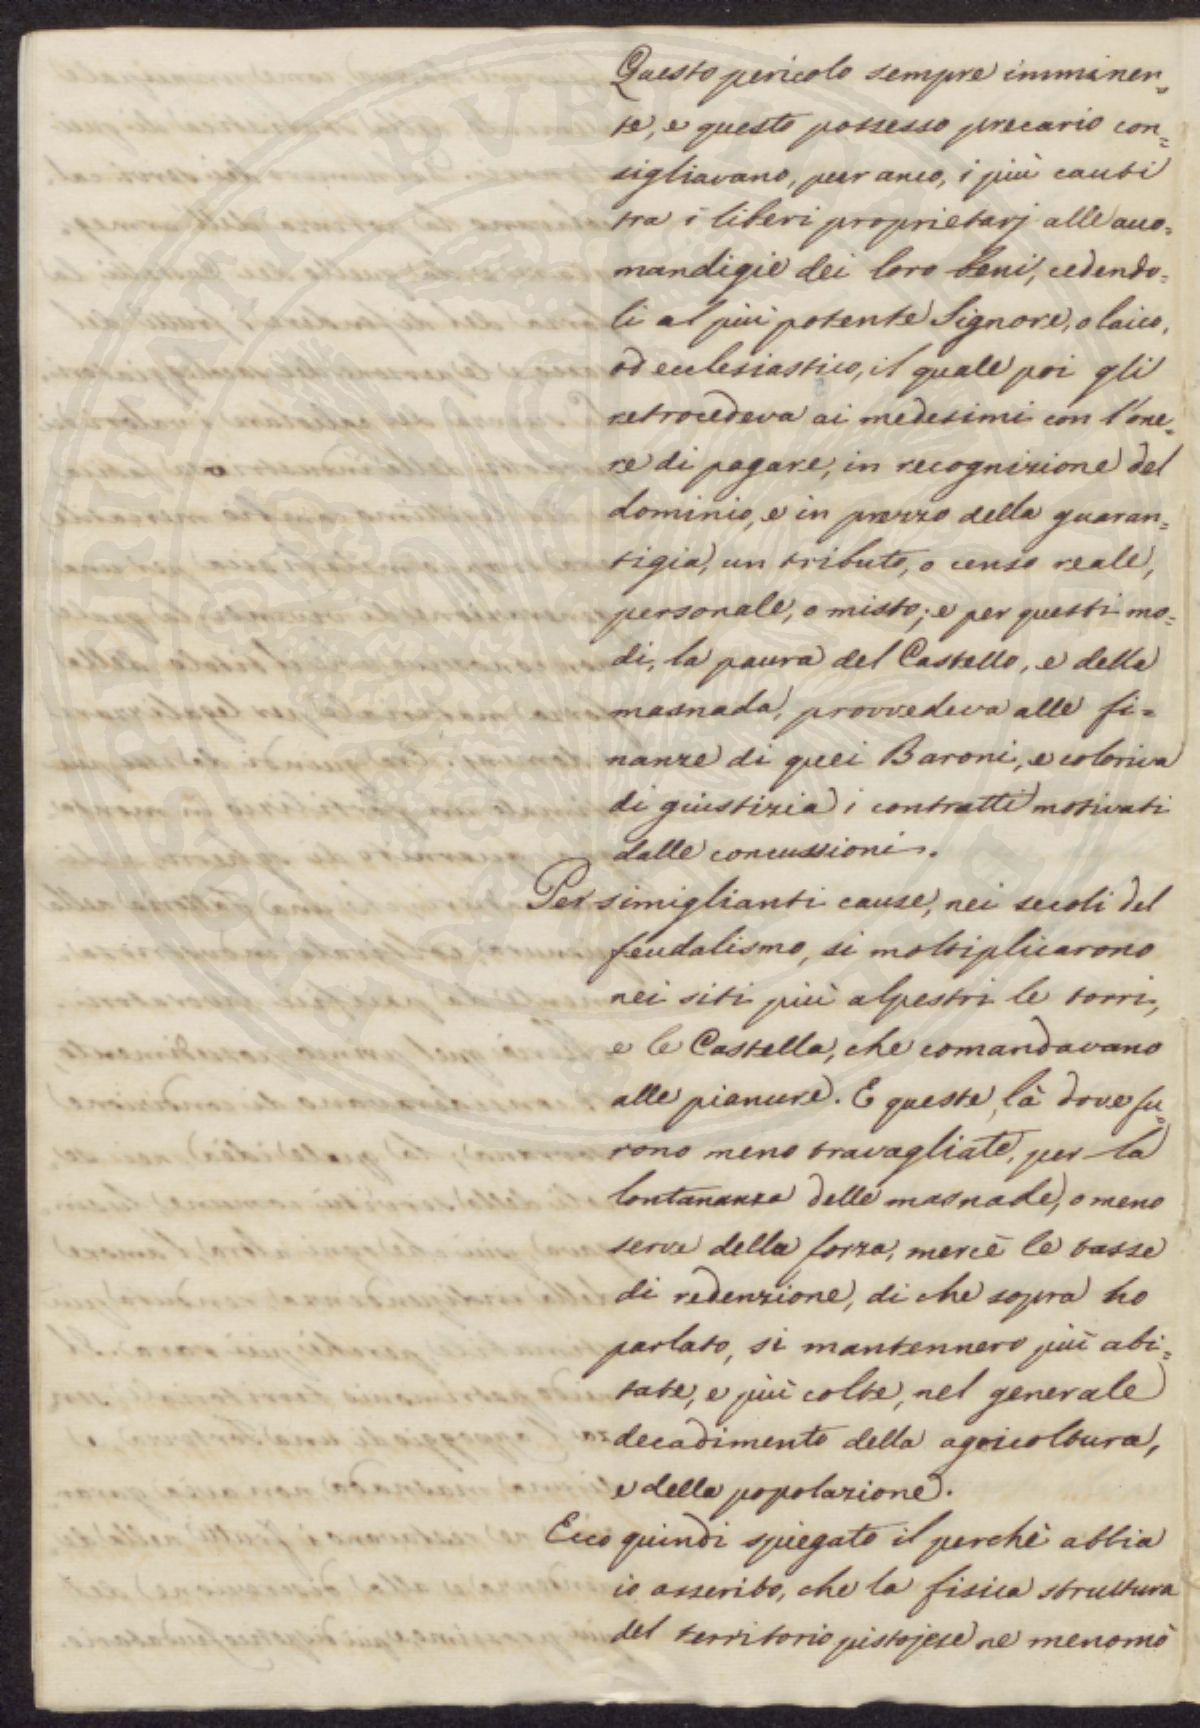 Questo pericolo sempre imminen=
te, e questo possesso precario con=
sigliavano, pur anco, i più cauti
tra i liberi proprietarj alle acco=
mandigie dei loro beni, cedendo=
li al più potente Signore, o laico,
od ecclesiastico, il quale poi gli
retrocedeva ai medesimi con l'one=
re di pagare, in recognizione del
dominio, e in prezzo della guaran=
tigia, un tributo, o censo reale,
personale, o misto; e per questi mo=
di, la paura del Castello, e della
masnada, provvedeva alle fi=
nanze di quei Baroni, e coloriva
di giustizia i contratti motivati
dalle concussioni.
Per simiglianti cause, nei secoli del
feudalismo, si moltiplicarono
nei siti più alpestri le torri,
e le Castella, che comandavano
alle pianure. E queste, là dove fu=
rono meno travagliate, per la
lontananza delle masnade, o meno
serve della forza, mercè le tasse
di redenzione, di che sopra ho
parlato, si mantennero più abi=
tate, e più colte, nel generale
decadimento della agricoltura,
e della popolazione.
Ecco quindi spiegato il perchè abbia
io asserito, che la fisica struttura
del territorio pistojese ne menomò